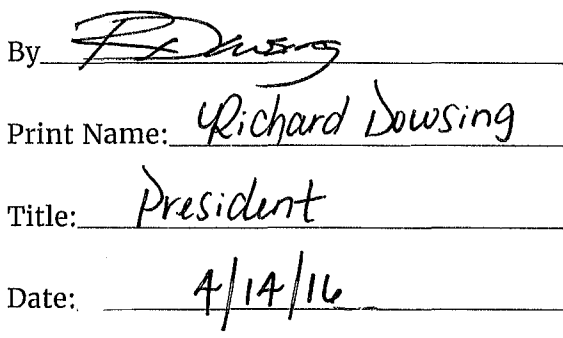 By R Dowsing
Print Name: Richard Dowsing
Title: President
Date: 4/14/16